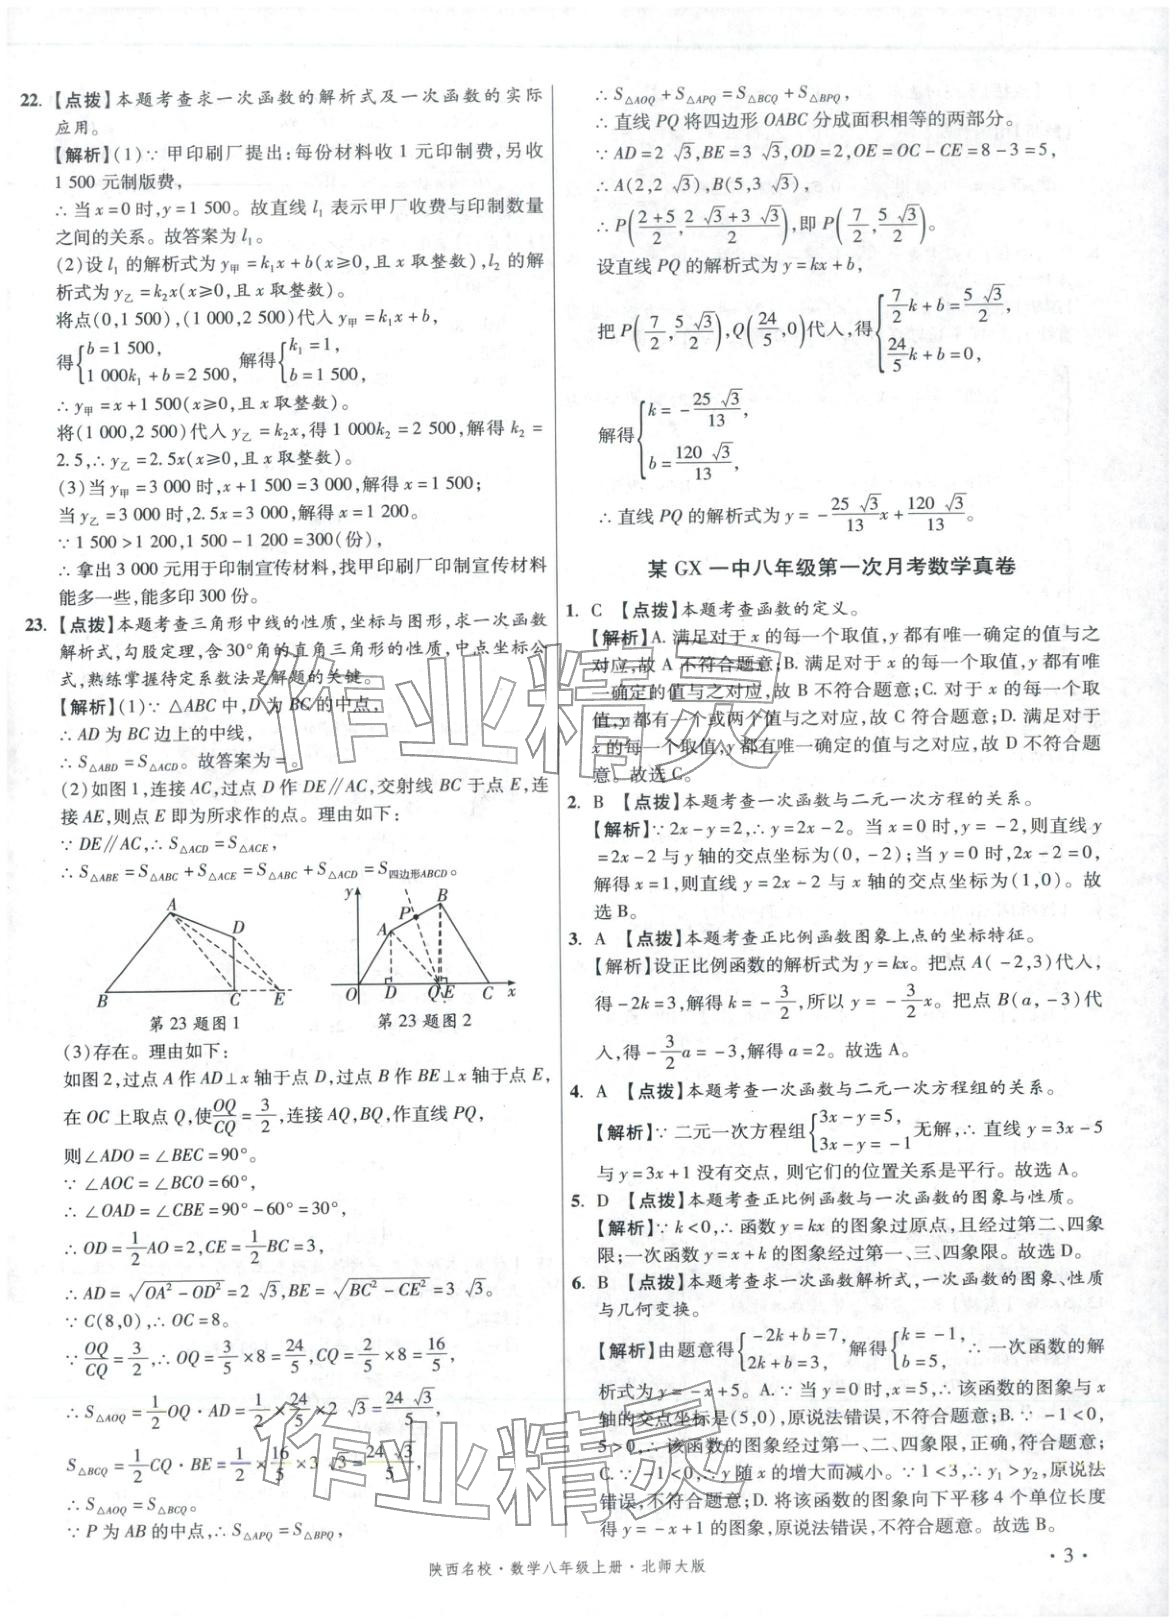 22. 【点拨】本题考查求一次函数的解析式及一次函数的实际
应用。
【解析】(1)∵ 甲印刷厂提出:每份材料收 1 元印制费,另收
1 500 元制版费,
∴ 当 x=0 时,y=1 500。故直线 l₁ 表示甲厂收费与印制数量
之间的关系。故答案为 l₁。
(2)设 l₁ 的解析式为 y甲=k₁x+b(x⩾0,且 x 取整数),l₂ 的解
析式为 y乙=k₂x(x⩾0,且 x 取整数)。
将点(0,1 500),(1 000,2 500)代入 y甲=k₁x+b,
得{b=1 500, 1 000k₁+b=2 500, 解得{k₁=1, b=1 500,
∴ y甲=x+1 500(x⩾0,且 x 取整数)。
将(1 000,2 500)代入 y乙=k₂x,得 1 000k₂=2 500,解得 k₂=
2.5,∴ y乙=2.5x(x⩾0,且 x 取整数)。
(3)当 y甲=3 000 时,x+1 500=3 000,解得 x=1 500;
当 y乙=3 000 时,2.5x=3 000,解得 x=1 200。
∵ 1 500>1 200,1 500-1 200=300(份),
∴ 拿出 3 000 元用于印制宣传材料,找甲印刷厂印制宣传材料
能多一些,能多印 300 份。
23. 【点拨】本题考查三角形中线的性质,坐标与图形,求一次函数
解析式,勾股定理,含 30°角的直角三角形的性质,中点坐标公
式,熟练掌握待定系数法是解题的关键。
【解析】(1)∵ △ABC 中,D 为 BC 的中点,
∴ AD 为 BC 边上的中线,
∴ S△ABD=S△ACD。故答案为=。
(2)如图 1,连接 AC,过点 D 作 DE∥AC,交射线 BC 于点 E,连
接 AE,则点 E 即为所求作的点。理由如下:
∵ DE∥AC,∴ S△ACD=S△ACE,
∴ S△ABE=S△ABC+S△ACE=S△ABC+S△ACD=S四边形ABCD。
A D B C E
第 23 题图 1
y P B A O D Q E C x
第 23 题图 2
(3)存在。理由如下:
如图 2,过点 A 作 AD⊥x 轴于点 D,过点 B 作 BE⊥x 轴于点 E,
在 OC 上取点 Q,使OQ/CQ=3/2,连接 AQ,BQ,作直线 PQ,
则∠ADO=∠BEC=90°。
∵ ∠AOC=∠BCO=60°,
∴ ∠OAD=∠CBE=90°-60°=30°,
∴ OD=1/2AO=2,CE=1/2BC=3,
∴ AD=√(OA²-OD²)=2 √3,BE=√(BC²-CE²)=3 √3。
∵ C(8,0),∴ OC=8。
∵ OQ/CQ=3/2,∴ OQ=3/5×8=24/5,CQ=2/5×8=16/5,
∴ S△AOQ=1/2OQ·AD=1/2×24/5×2 √3=24 √3/5,
S△BCQ=1/2CQ·BE=1/2×16/5×3 √3=24 √3/5,
∴ S△AOQ=S△BCQ。
∵ P 为 AB 的中点,∴ S△APQ=S△BPQ,
∴ S△AOQ+S△APQ=S△BCQ+S△BPQ,
∴ 直线 PQ 将四边形 OABC 分成面积相等的两部分。
∵ AD=2 √3,BE=3 √3,OD=2,OE=OC-CE=8-3=5,
∴ A(2,2 √3),B(5,3 √3),
∴ P(2+5/2,2 √3+3 √3/2),即 P(7/2,5 √3/2)。
设直线 PQ 的解析式为 y=kx+b,
把 P(7/2,5 √3/2),Q(24/5,0)代入,得{7/2k+b=5 √3/2, 24/5k+b=0,
解得{k=-25 √3/13, b=120 √3/13,
∴ 直线 PQ 的解析式为 y=-25 √3/13x+120 √3/13。
某 GX 一中八年级第一次月考数学真卷
1. C 【点拨】本题考查函数的定义。
【解析】A. 满足对于 x 的每一个取值,y 都有唯一确定的值与之
对应,故 A 不符合题意;B. 满足对于 x 的每一个取值,y 都有唯
一确定的值与之对应,故 B 不符合题意;C. 对于 x 的每一个取
值,y 都有一个或两个值与之对应,故 C 符合题意;D. 满足对于
x 的每一个取值,y 都有唯一确定的值与之对应,故 D 不符合题
意。故选 C。
2. B 【点拨】本题考查一次函数与二元一次方程的关系。
【解析】∵ 2x-y=2,∴ y=2x-2。当 x=0 时,y=-2,则直线 y
=2x-2 与 y 轴的交点坐标为(0,-2);当 y=0 时,2x-2=0,
解得 x=1,则直线 y=2x-2 与 x 轴的交点坐标为(1,0)。故
选 B。
3. A 【点拨】本题考查正比例函数图象上点的坐标特征。
【解析】设正比例函数的解析式为 y=kx。把点 A(-2,3)代入,
得-2k=3,解得 k=-3/2,所以 y=-3/2x。把点 B(a,-3)代
入,得-3/2a=-3,解得 a=2。故选 A。
4. A 【点拨】本题考查一次函数与二元一次方程组的关系。
【解析】∵ 二元一次方程组{3x-y=5, 3x-y=-1 无解,∴ 直线 y=3x-5
与 y=3x+1 没有交点,则它们的位置关系是平行。故选 A。
5. D 【点拨】本题考查正比例函数与一次函数的图象与性质。
【解析】∵ k<0,∴ 函数 y=kx 的图象过原点,且经过第二、四象
限;一次函数 y=x+k 的图象经过第一、三、四象限。故选 D。
6. B 【点拨】本题考查求一次函数解析式,一次函数的图象、性质
与几何变换。
【解析】由题意得{-2k+b=7, 2k+b=3, 解得{k=-1, b=5, ∴ 一次函数的解
析式为 y=-x+5。A.∵ 当 y=0 时,x=5,∴ 该函数的图象与 x
轴的交点坐标是(5,0),原说法错误,不符合题意;B.∵ -1<0,
5>0,∴ 该函数的图象经过第一、二、四象限,正确,符合题意;
C.∵ -1<0,∴ y 随 x 的增大而减小。∵ 1<3,∴ y₁>y₂,原说法
错误,不符合题意;D. 将该函数的图象向下平移 4 个单位长度
得 y=-x+1 的图象,原说法错误,不符合题意。故选 B。
作业精灵
作业精灵
陕西名校·数学八年级上册·北师大版
·3·